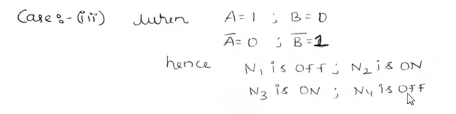 Case:- (iii) when A=1 ; B=0
A̅=0 ; B̅=1
hence N₁ is OFF ; N₂ is ON
N₃ is ON ; N₄ is OFF